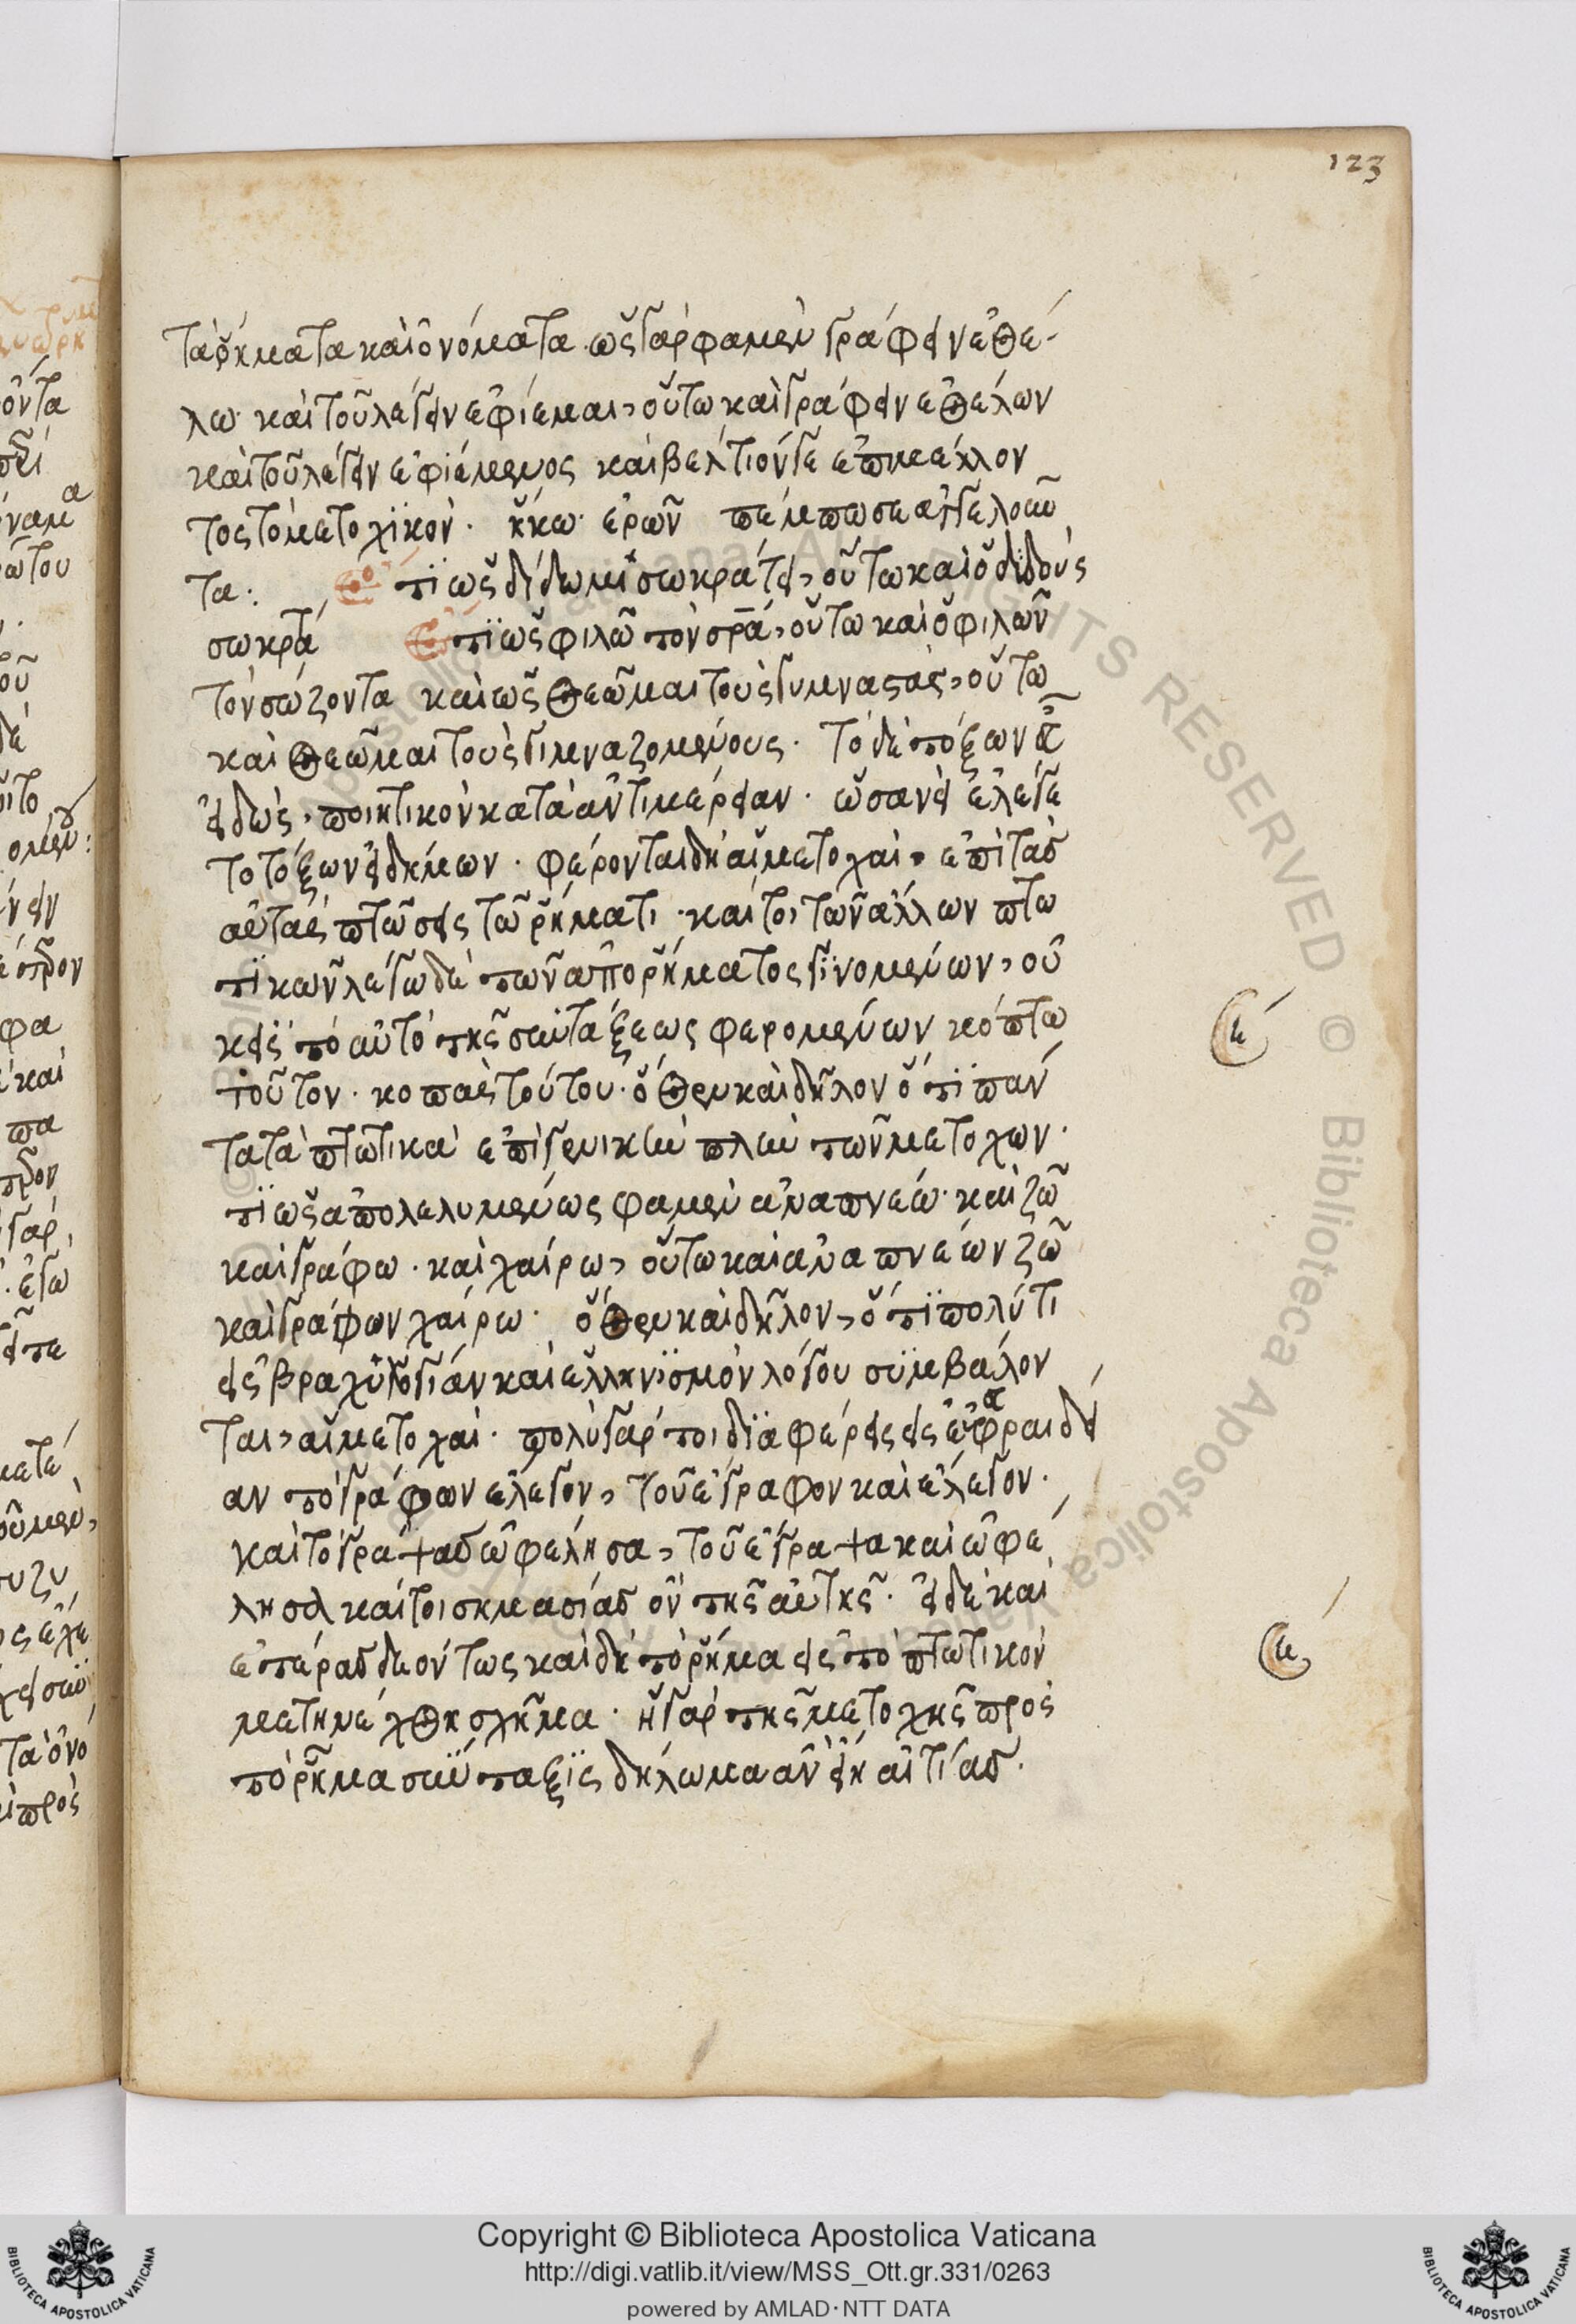 123
τὰ ῥήματα καὶ ὀνόματα· ὡς γάρ φαμεν γράφειν ἐθέ-
λω· καὶ τοῦ λέγειν ἐφίεμαι, οὕτω καὶ γράφειν ἐθέλων
καὶ τοῦ λέγειν ἐφιέμενος καὶ βέλτιόν γε ἐπὶ μέλλον
τος τὸ μετοχϊκόν· ἥκω· ἐρῶν πέμπω σε ἀγγελοῦν
τα:
ὅτϊ ὡς δίδωμι σωκράτει, οὕτω καὶ ὁ δϊδοὺς
σωκρά
ὅτϊ ὡς φιλῶ τὸν σρᾱ́, οὕτω καὶ ὁ φιλῶν
τὸν σώζοντα καὶ ὡς θεῶμαι τοὺς γυμναστὰς, οὕτω
καὶ θεῶμαι τοὺς γιμναζομένους· τὸ δὲ τόξων
εἰδὼς, ποιητικὸν κατὰ ἀντιμέρειαν· ὡσανεὶ ἔλεγε
το τόξων εἰδήμων· φέρονται δὴ αἱ μετοχαὶ, ἐπὶ τὰς
αὐτὰς πτώσεις τῶ ῥήματι· καίτοι τῶν ἄλλων πτω
τϊκῶν λέγω δὲ τῶν ἀπὸ ῥήματος γϊνομένων, οὐ
κ εἰς τὸ αὐτὸ τῆς συντάξεως φερομένων κόπτω
τοῦτον· κοπαὶς τούτου· ὅθεν καὶ δῆλον ὅτϊ πάν
τα τὰ πτωτικὰ ἐπὶ γενικὴν πλὴν τῶν μετοχων·
τϊ ὡς ἀπολελυμένως φαμεν ἀναπνέω· καὶ ζῶ
καὶ γράφω· καὶ χαίρω, οὕτω καὶ ἀναπνέων ζῶ
καὶ γράφων χαίρω· ὅθεν καὶ δῆλον, ὅτϊ πολύ τι
εἰς βραχυλογίαν καὶ ἑλληνϊσμὸν λόγου συμβάλον
ται, αἱ μετοχαί· πολὺ γάρ τοι δϊαφέρει εἰς εὐφράδει
αν τὸ γράφων ἔλεγον, τοῦ ἔγραφον καὶ ἔλεγον·
καὶ τὸ γράψας ὠφέλησα, τοῦ ἔγραψα καὶ ὠφέ
λησα καίτοι σημασίας ὂν τῆς αὐτῆς· εἰ δὲ καὶ
ἑτέρας δεόντως καὶ δὴ τὸ ῥῆμα εἰς τὸ πτωτικὸν
μετηνέχθη σχῆμα· ἡ γὰρ τῆς μετοχῆς πρὸς
τὸ ῥῆμα σύνταξϊς δήλωμα ἂν εἴη αἰτίας·
Copyright © Biblioteca Apostolica Vaticana
http://digi.vatlib.it/view/MSS_Ott.gr.331/0263
powered by AMLAD·NTT DATA